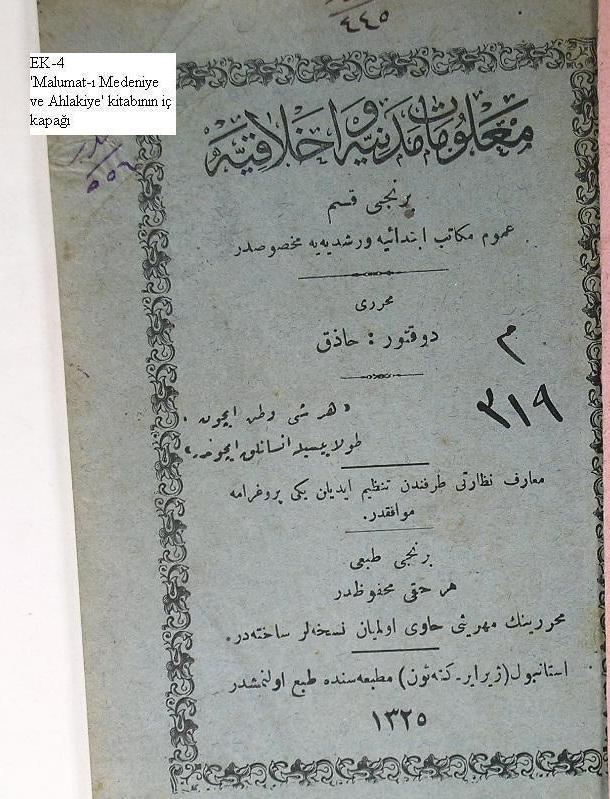 ٤٤٥
EK-4
'Malumat-ı Medeniye
ve Ahlakiye' kitabının iç
kapağı
معلومات مدنيه و اخلاقيه
برنجى قسم
عموم مكاتب ابتدائيه ورشديه‌يه مخصوصدر
محررى
دوقتور : حاذق
م
٣١٩
« هر شى وطن ايچون .
طولاييسيله انسانلق ايچوندر »
معارف نظارتى طرفندن تنظيم ايديلن يكى پروغرامه
موافقدر.
برنجى طبعى
هر حقى محفوظدر
محررينك مهرينى حاوى اولميان نسخه‌لر ساخته‌در.
استانبول (ژيراير ـ كته‌ئون) مطبعه‌سنده طبع اولنمشدر
١٣٢٥